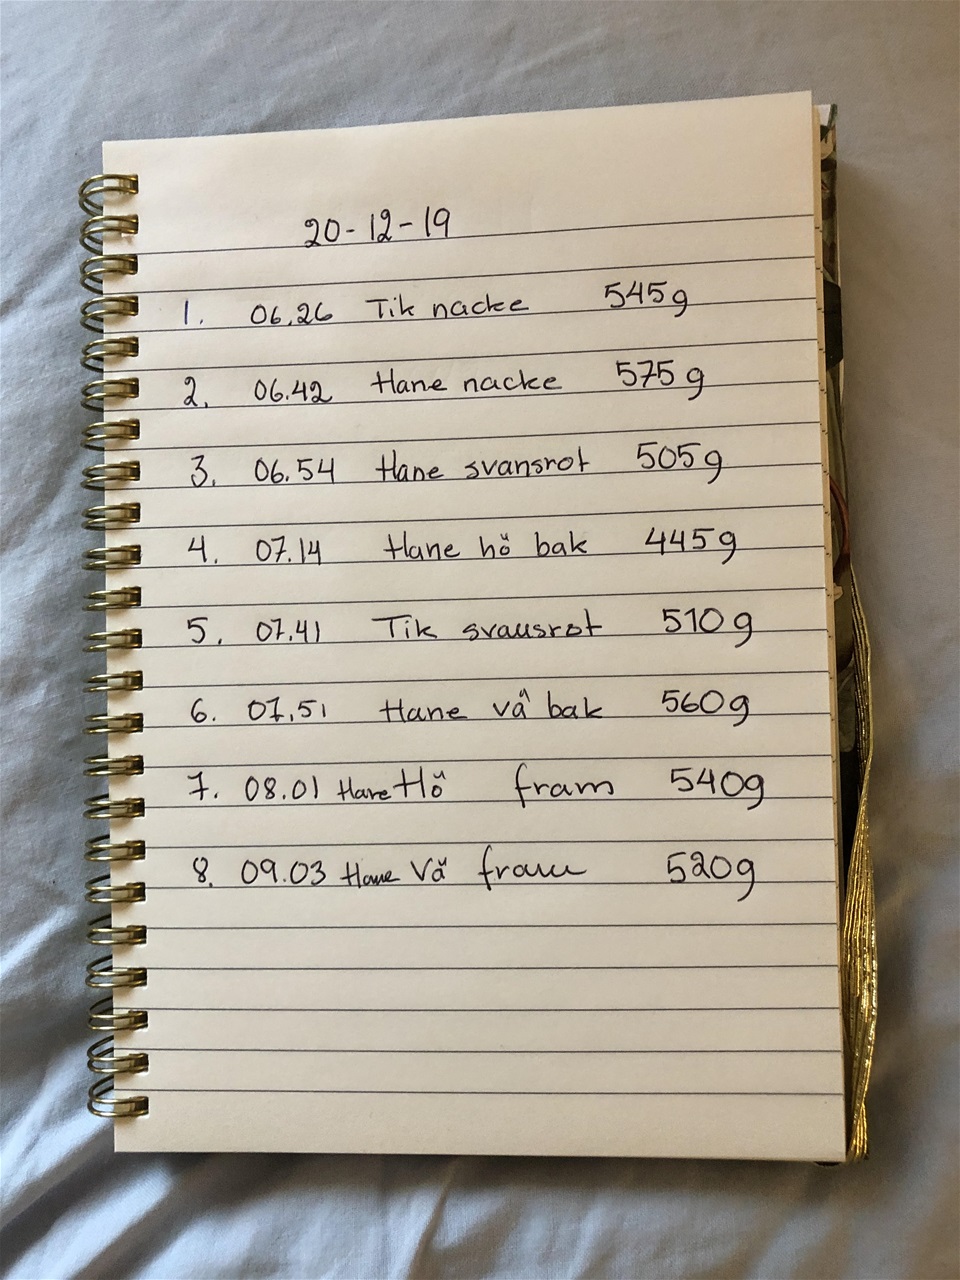 20-12-19
1. 06.26 Tik nacke 545g
2. 06.42 Hane nacke 575g
3. 06.54 Hane svansrot 505g
4. 07.14 Hane hö bak 445g
5. 07.41 Tik svansrot 510g
6. 07.51 Hane vä bak 560g
7. 08.01 Hane Hö fram 540g
8. 09.03 Hane Vä fram 520g